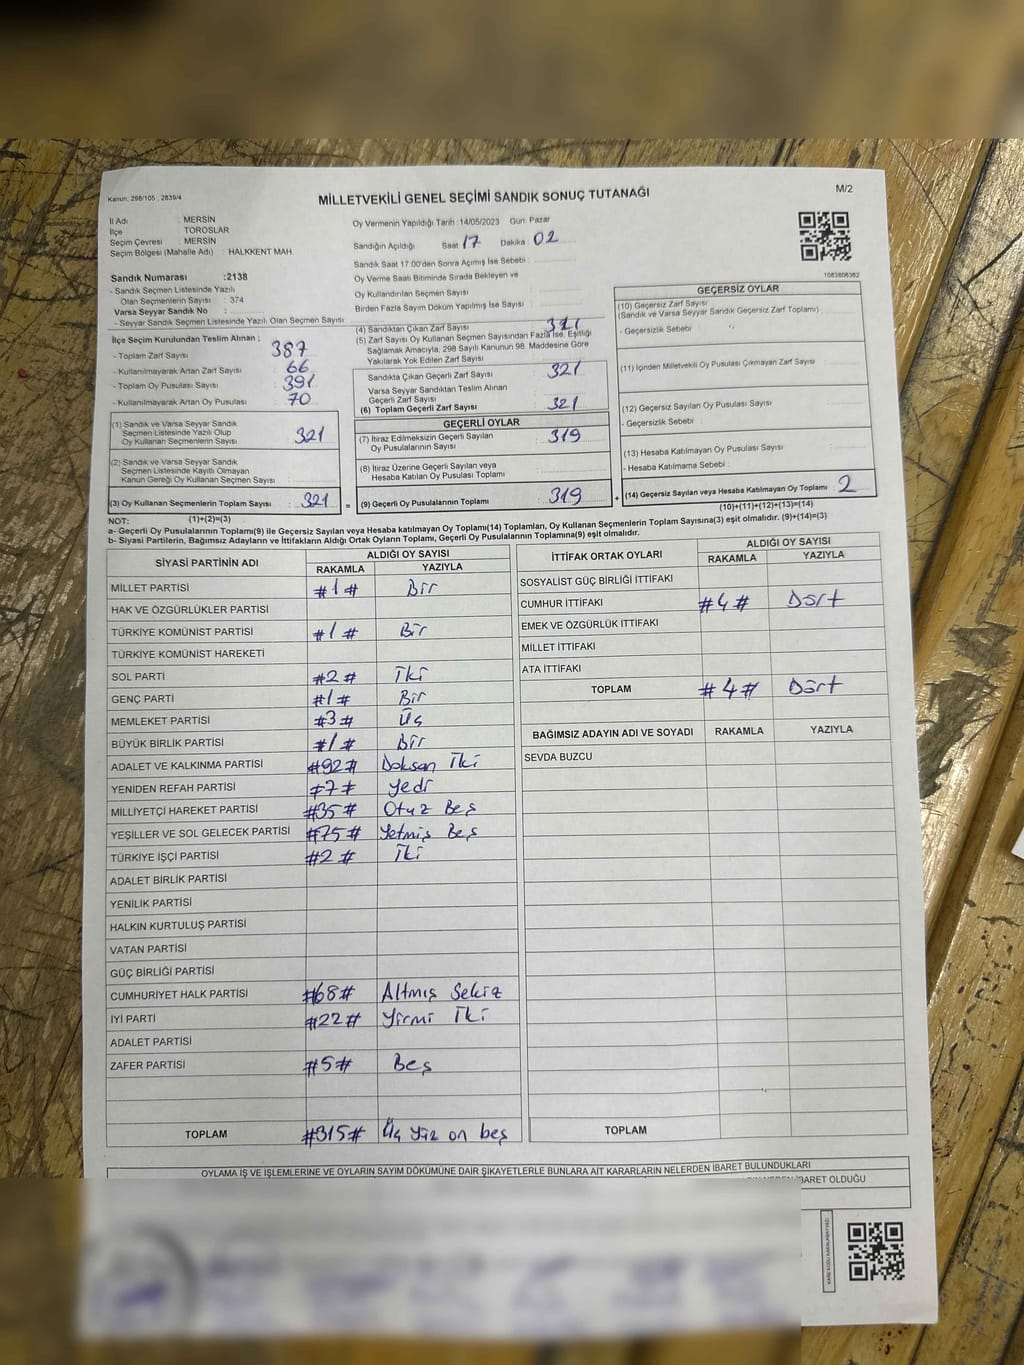 Kanun: 298/105, 2839/4
MİLLETVEKİLİ GENEL SEÇİMİ SANDIK SONUÇ TUTANAĞI
M/2
İl Adı : MERSİN
İlçe : TOROSLAR
Seçim Çevresi : MERSİN
Seçim Bölgesi (Mahalle Adı) : HALKKENT MAH
Sandık Numarası : 2138
- Sandık Seçmen Listesinde Yazılı
Olan Seçmenlerin Sayısı : 374
Varsa Seyyar Sandık No :
- Seyyar Sandık Seçmen Listesinde Yazılı Olan Seçmen Sayısı
İlçe Seçim Kurulundan Teslim Alınan ;
- Toplam Zarf Sayısı : 387
- Kullanılmayarak Artan Zarf Sayısı : 66
- Toplam Oy Pusulası Sayısı : 391
- Kullanılmayarak Artan Oy Pusulası : 70
(1) Sandık ve Varsa Seyyar Sandık
Seçmen Listesinde Yazılı Olup
Oy Kullanan Seçmenlerin Sayısı : 321
(2) Sandık ve Varsa Seyyar Sandık
Seçmen Listesinde Kayıtlı Olmayan
Kanun Gereği Oy Kullanan Seçmen Sayısı
(3) Oy Kullanan Seçmenlerin Toplam Sayısı : 321
(1)+(2)=(3)
Oy Vermenin Yapıldığı Tarih :14/05/2023 Gün: Pazar
Sandığın Açıldığı Saat 17 Dakika : 02
Sandık Saat 17:00'den Sonra Açımış İse Sebebi :
Oy Verme Saati Bitiminde Sırada Bekleyen ve
Oy Kullandırılan Seçmen Sayısı
Birden Fazla Sayım Döküm Yapılmış İse Sayısı :
(4) Sandıktan Çıkan Zarf Sayısı : 321
(5) Zarf Sayısı Oy Kullanan Seçmen Sayısından Fazla İse, Eşitliği
Sağlamak Amacıyla, 298 Sayılı Kanunun 98. Maddesine Göre
Yakılarak Yok Edilen Zarf Sayısı
Sandıkta Çıkan Geçerli Zarf Sayısı : 321
Varsa Seyyar Sandıktan Teslim Alınan
Geçerli Zarf Sayısı
(6) Toplam Geçerli Zarf Sayısı : 321
GEÇERLİ OYLAR
(7) İtiraz Edilmeksizin Geçerli Sayılan
Oy Pusulalarının Sayısı : 319
(8) İtiraz Üzerine Geçerli Sayılan veya
Hesaba Katılan Oy Pusulası Toplamı
= (9) Geçerli Oy Pusulalarının Toplamı : 319
1083806362
GEÇERSİZ OYLAR
(10) Geçersiz Zarf Sayısı
(Sandık ve Varsa Seyyar Sandık Geçersiz Zarf Toplamı)
- Geçersizlik Sebebi :
(11) İçinden Milletvekili Oy Pusulası Çıkmayan Zarf Sayısı
(12) Geçersiz Sayılan Oy Pusulası Sayısı
- Geçersizlik Sebebi
(13) Hesaba Katılmayan Oy Pusulası Sayısı
- Hesaba Katılmama Sebebi :
+ (14) Geçersiz Sayılan veya Hesaba Katılmayan Oy Toplamı 2
(10)+(11)+(12)+(13)=(14)
NOT:
a- Geçerli Oy Pusulalarının Toplamı(9) ile Geçersiz Sayılan veya Hesaba katılmayan Oy Toplamı(14) Toplamları, Oy Kullanan Seçmenlerin Toplam Sayısına(3) eşit olmalıdır. (9)+(14)=(3)
b- Siyasi Partilerin, Bağımsız Adayların ve İttifakların Aldığı Ortak Oyların Toplamı, Geçerli Oy Pusulalarının Toplamına(9) eşit olmalıdır.
SİYASİ PARTİNİN ADI ALDIĞI OY SAYISI
RAKAMLA YAZIYLA
MİLLET PARTİSİ #1# Bir
HAK VE ÖZGÜRLÜKLER PARTİSİ
TÜRKİYE KOMÜNİST PARTİSİ #1# Bir
TÜRKİYE KOMÜNİST HAREKETİ
SOL PARTİ #2# İki
GENÇ PARTİ #1# Bir
MEMLEKET PARTİSİ #3# Üç
BÜYÜK BİRLİK PARTİSİ #1# Bir
ADALET VE KALKINMA PARTİSİ #92# Doksan İki
YENİDEN REFAH PARTİSİ #7# Yedi
MİLLİYETÇİ HAREKET PARTİSİ #35# Otuz Beş
YEŞİLLER VE SOL GELECEK PARTİSİ #75# Yetmiş Beş
TÜRKİYE İŞÇİ PARTİSİ #2# İki
ADALET BİRLİK PARTİSİ
YENİLİK PARTİSİ
HALKIN KURTULUŞ PARTİSİ
VATAN PARTİSİ
GÜÇ BİRLİĞİ PARTİSİ
CUMHURİYET HALK PARTİSİ #68# Altmış Sekiz
İYİ PARTİ #22# Yirmi İki
ADALET PARTİSİ
ZAFER PARTİSİ #5# Beş
TOPLAM #315# Üç Yüz on beş
İTTİFAK ORTAK OYLARI ALDIĞI OY SAYISI
RAKAMLA YAZIYLA
SOSYALİST GÜÇ BİRLİĞİ İTTİFAKI
CUMHUR İTTİFAKI #4# Dört
EMEK VE ÖZGÜRLÜK İTTİFAKI
MİLLET İTTİFAKI
ATA İTTİFAKI
TOPLAM #4# Dört
BAĞIMSIZ ADAYIN ADI VE SOYADI RAKAMLA YAZIYLA
SEVDA BUZCU
TOPLAM
OYLAMA İŞ VE İŞLEMLERİNE VE OYLARIN SAYIM DÖKÜMÜNE DAİR ŞİKAYETLERLE BUNLARA AİT KARARLARIN NELERDEN İBARET BULUNDUKLARI
İBARET OLDUĞU